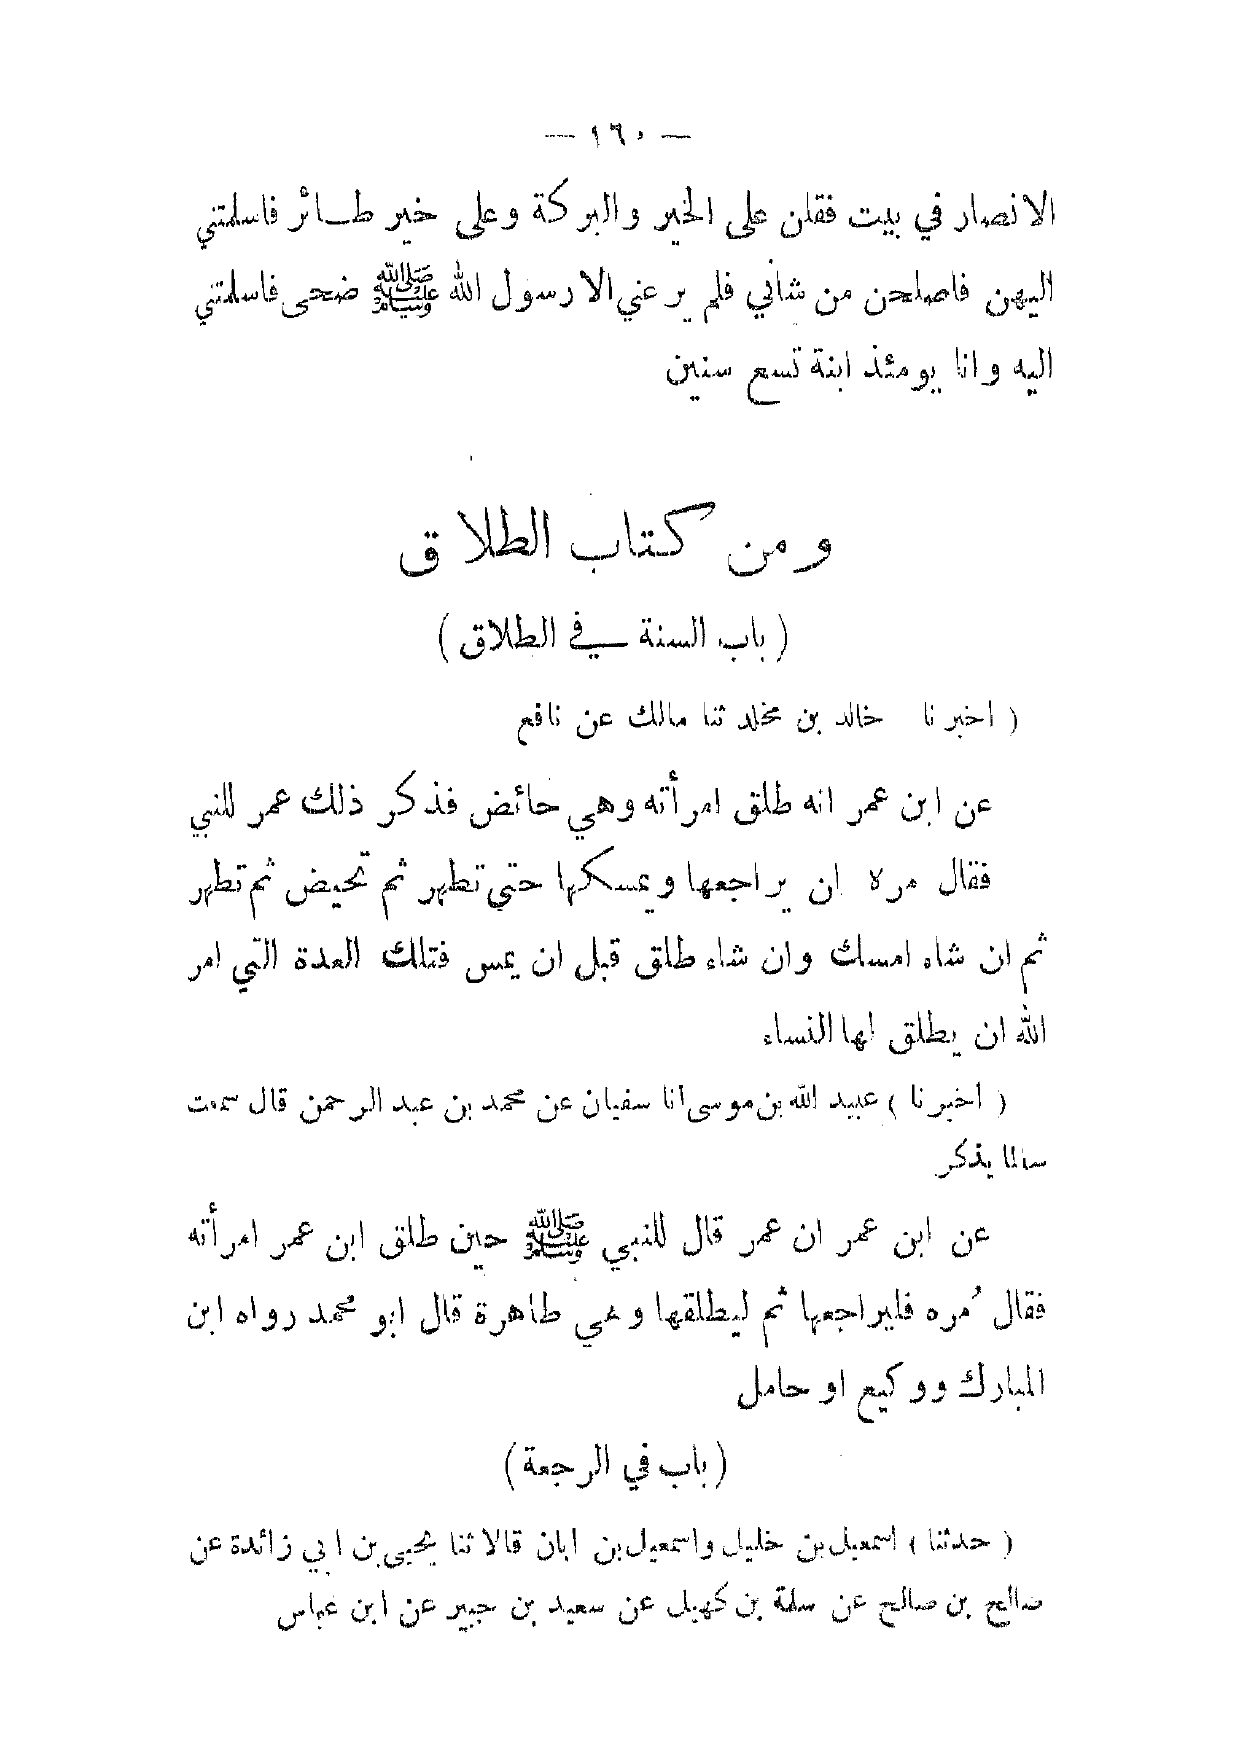 — ١٦٠ —
الانصار في بيت فقلن على الخير والبركة وعلى خير طـائر فاسلمتني
اليهن فاصلحن من شأني فلم ير عني الا رسول الله ﷺ ضحى فاسلمتني
اليه وانا يومئذ ابنة تسع سنين
ومن كتاب الطلاق
( باب السنة في الطلاق )
( اخبرنا خالد بن مخلد ثنا مالك عن نافع
عن ابن عمر انه طلق امرأته وهي حائض فذكر ذلك عمر للنبي
فقال مره ان يراجعها ويمسكها حتى تطهر ثم تحيض ثم تطهر
ثم ان شاء امسك وان شاء طلق قبل ان يمس فتلك العدة التي امر
الله ان يطلق لها النساء
( اخبرنا ) عبيد الله بن موسى انا سفيان عن محمد بن عبد الرحمن قال سمعت
سالما يذكر
عن ابن عمر ان عمر قال للنبي ﷺ حين طلق ابن عمر امرأته
فقال مُره فليراجعها ثم ليطلقها وهي طاهرة قال ابو محمد رواه ابن
المبارك ووكيع او حامل
( باب في الرجعة )
( حدثنا ) اسمعيل بن خليل واسمعيل بن ابان قالا ثنا يحيى بن ابي زائدة عن
صالح بن صالح عن سلمة بن كهيل عن سعيد بن جبير عن ابن عباس